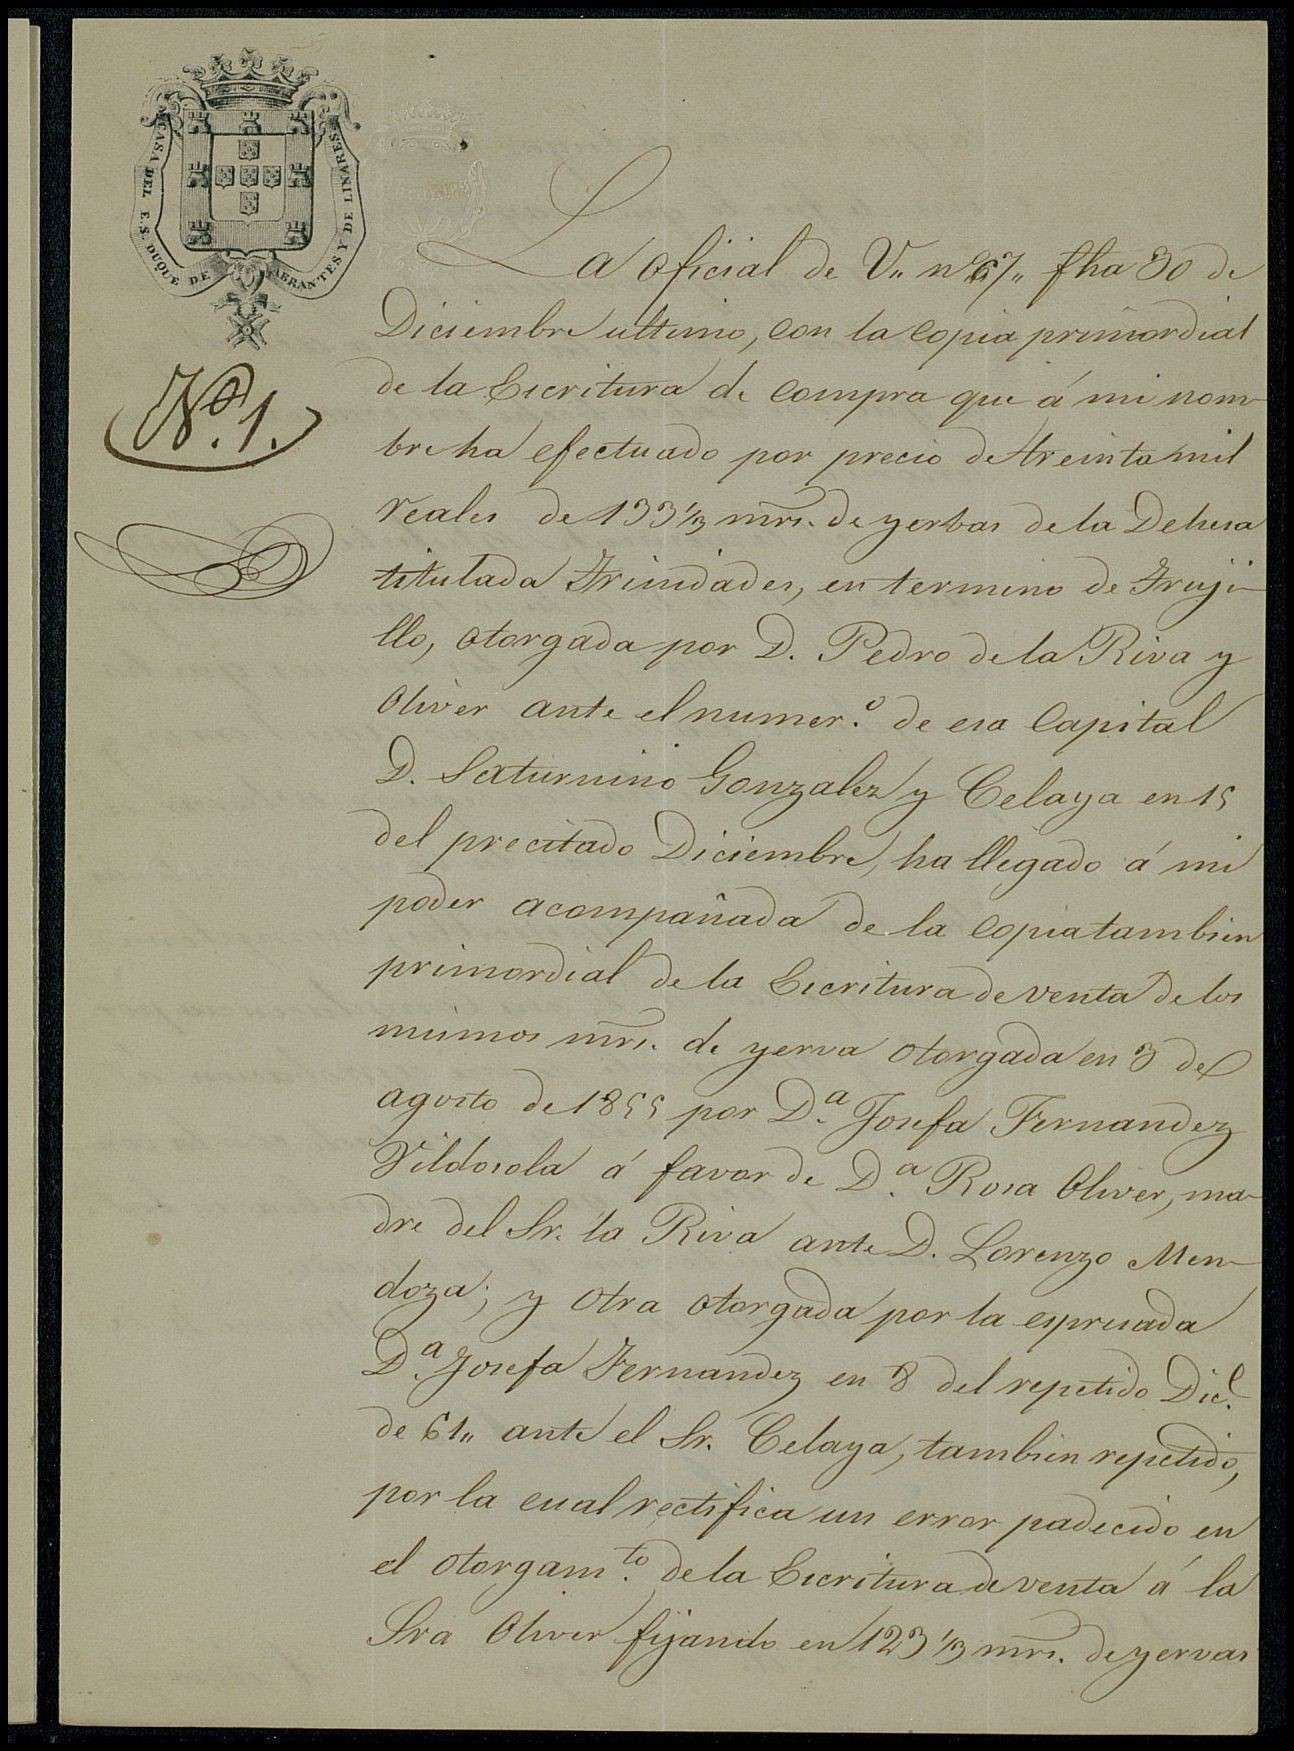 CASA DEL E.S. DUQUE DE ABRANTES Y DE LINARES
Nº. 1.
La oficial de V. n 67,, fha 30 de
Diciembre ultimo, con la copia primordial
de la Escritura de compra que á mi nom-
bre ha efectuado por precio de treinta mil
reales de 133 1/3 mrs. de yerbas de la Dehesa
titulada Trinidades, en termino de Truji-
llo, otorgada por D. Pedro de la Riva y
Oliver ante el numer.º de esa Capital
D. Saturnino Gonzalez y Celaya en 15
del precitado Diciembre, ha llegado á mi
poder acompañada de la copia tambien
primordial de la Escritura de venta de los
mismos mrs. de yerva otorgada en 3 de
agosto de 1855 por D.ª Josefa Fernandez
Vildosola á favor de D.ª Rosa Oliver, ma-
dre del Sr. la Riva ante D. Lorenzo Men-
doza; y otra otorgada por la espresada
D.ª Josefa Fernandez en 8 del repetido Dic.e
de 61,, ante el Sr. Celaya, tambien repetido,
por la cual rectifica un error padecido en
el otorgam.to de la Escritura de venta á la
Sra Oliver fijando en 123 1/3 mrs. de yervas